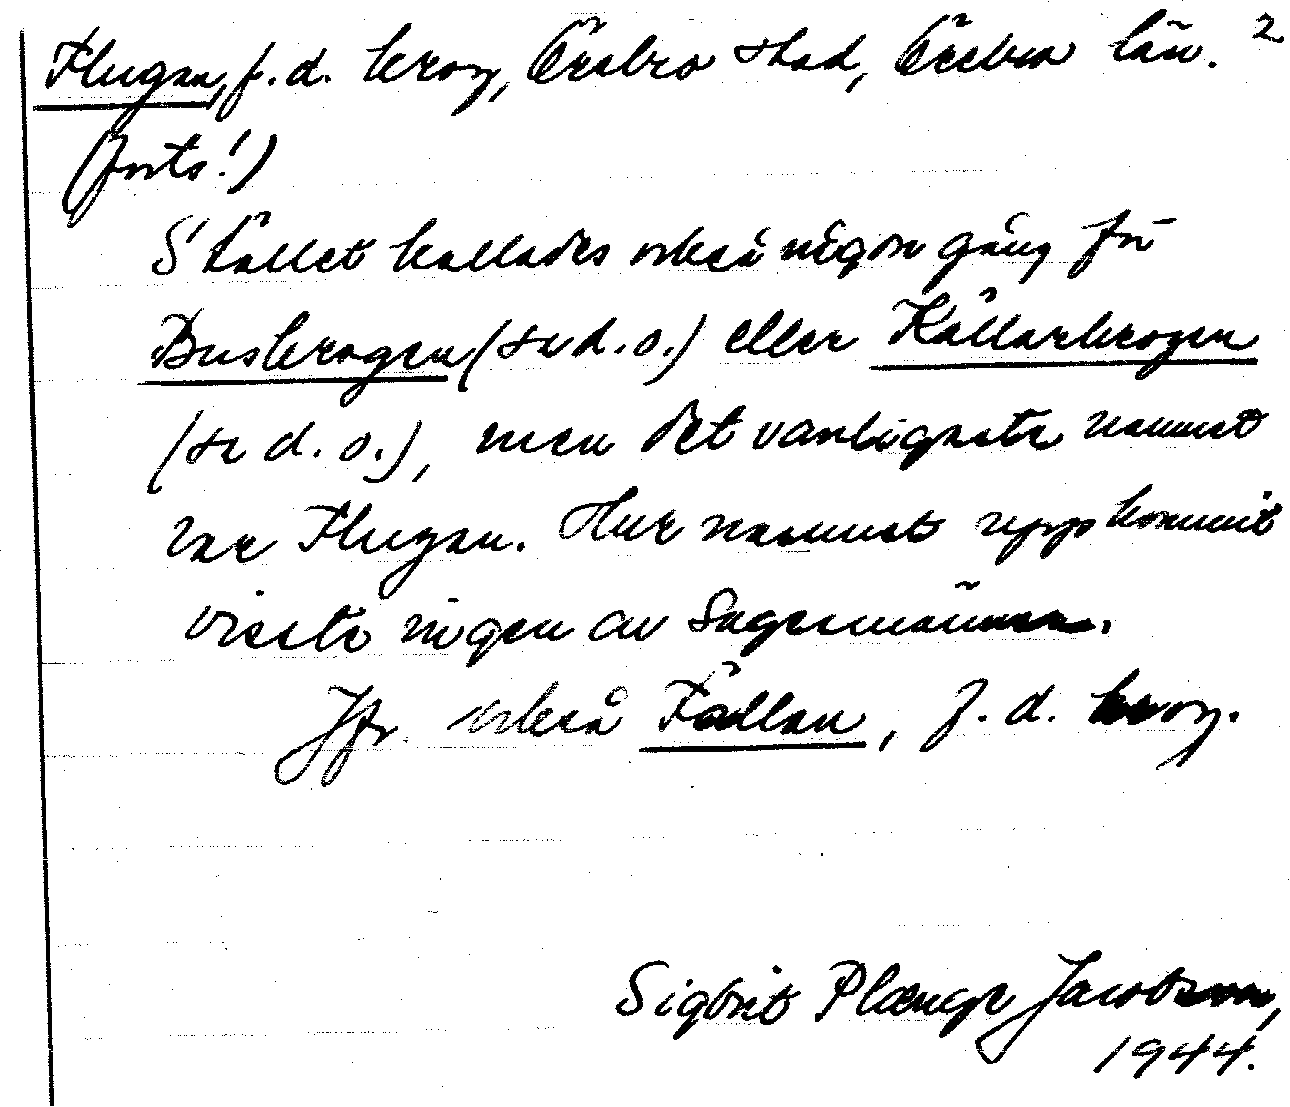 Flugan, f.d. krog, Örebro stad, Örebro län. 2
(forts!)
Stället kallades också någon gång för
Buskrogen (se d.o.) eller Källarkrogen
(se d.o.), men det vanligaste namnet
var Flugan. Hur namnet uppkommit
visste ingen av sagesmännen.
Jfr också Fällan, f.d. krog.
Sigbrit Plænge Jacobson,
1944.